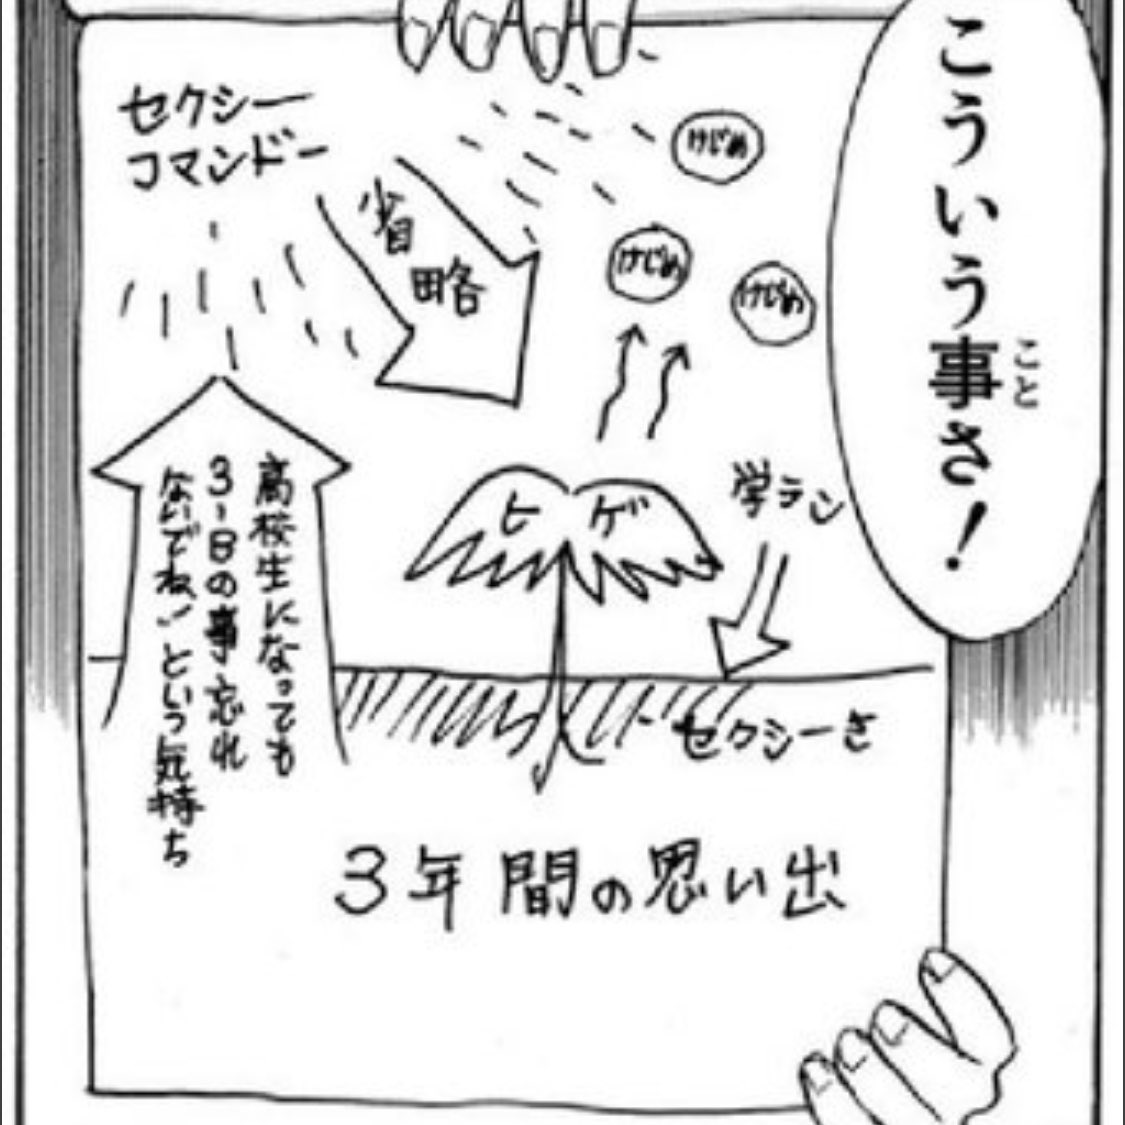 こういう事さ!
こと
セクシー
コマンドー
省略
けじめ
けじめ
けじめ
ヒゲ
学ラン
高校生になっても
3-Bの事忘れ
ないでね」という気持ち
セクシーさ
3年間の思い出